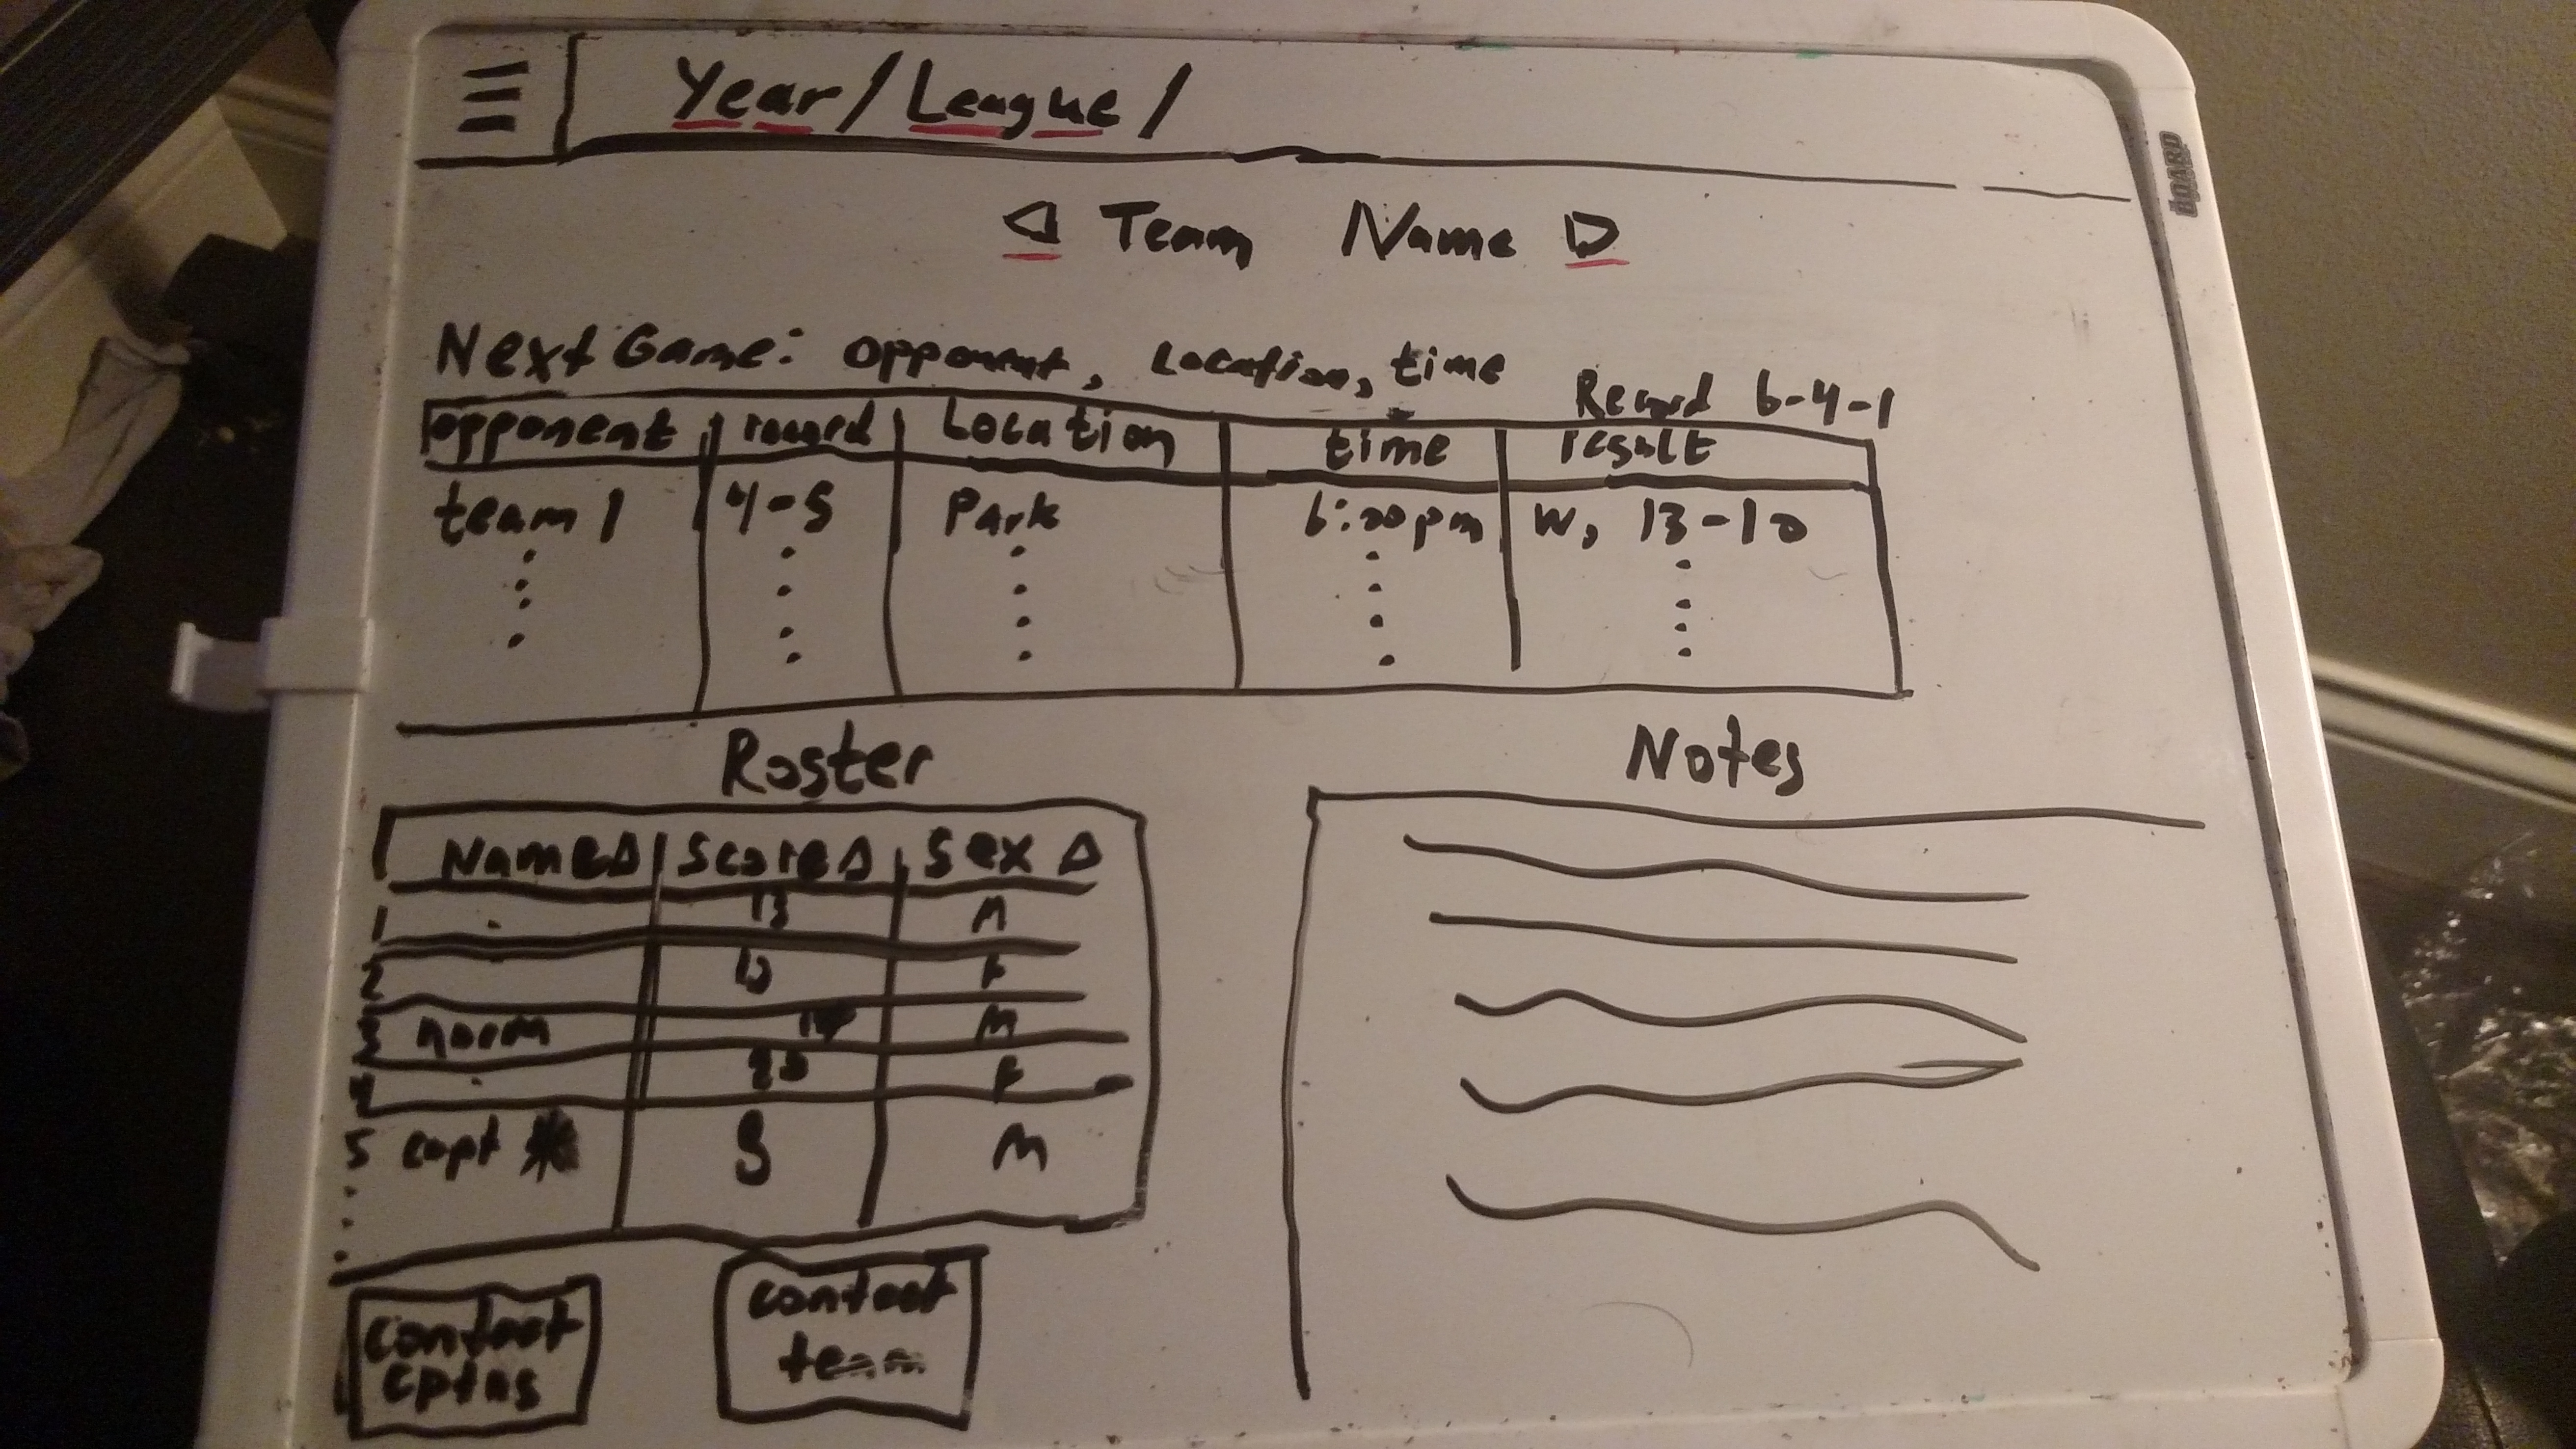 Year / League /
◁ Team Name ▷
Next Game: opponent, Location, time
Record 6-4-1
opponent record Location time result
team 1 4-5 Park 6:30pm W, 13-10
Roster
Notes
Name Δ Score Δ Sex Δ
1 13 M
2 F
3 norm M
4 F
5 capt * M
contact cptns
contact team
BOARD